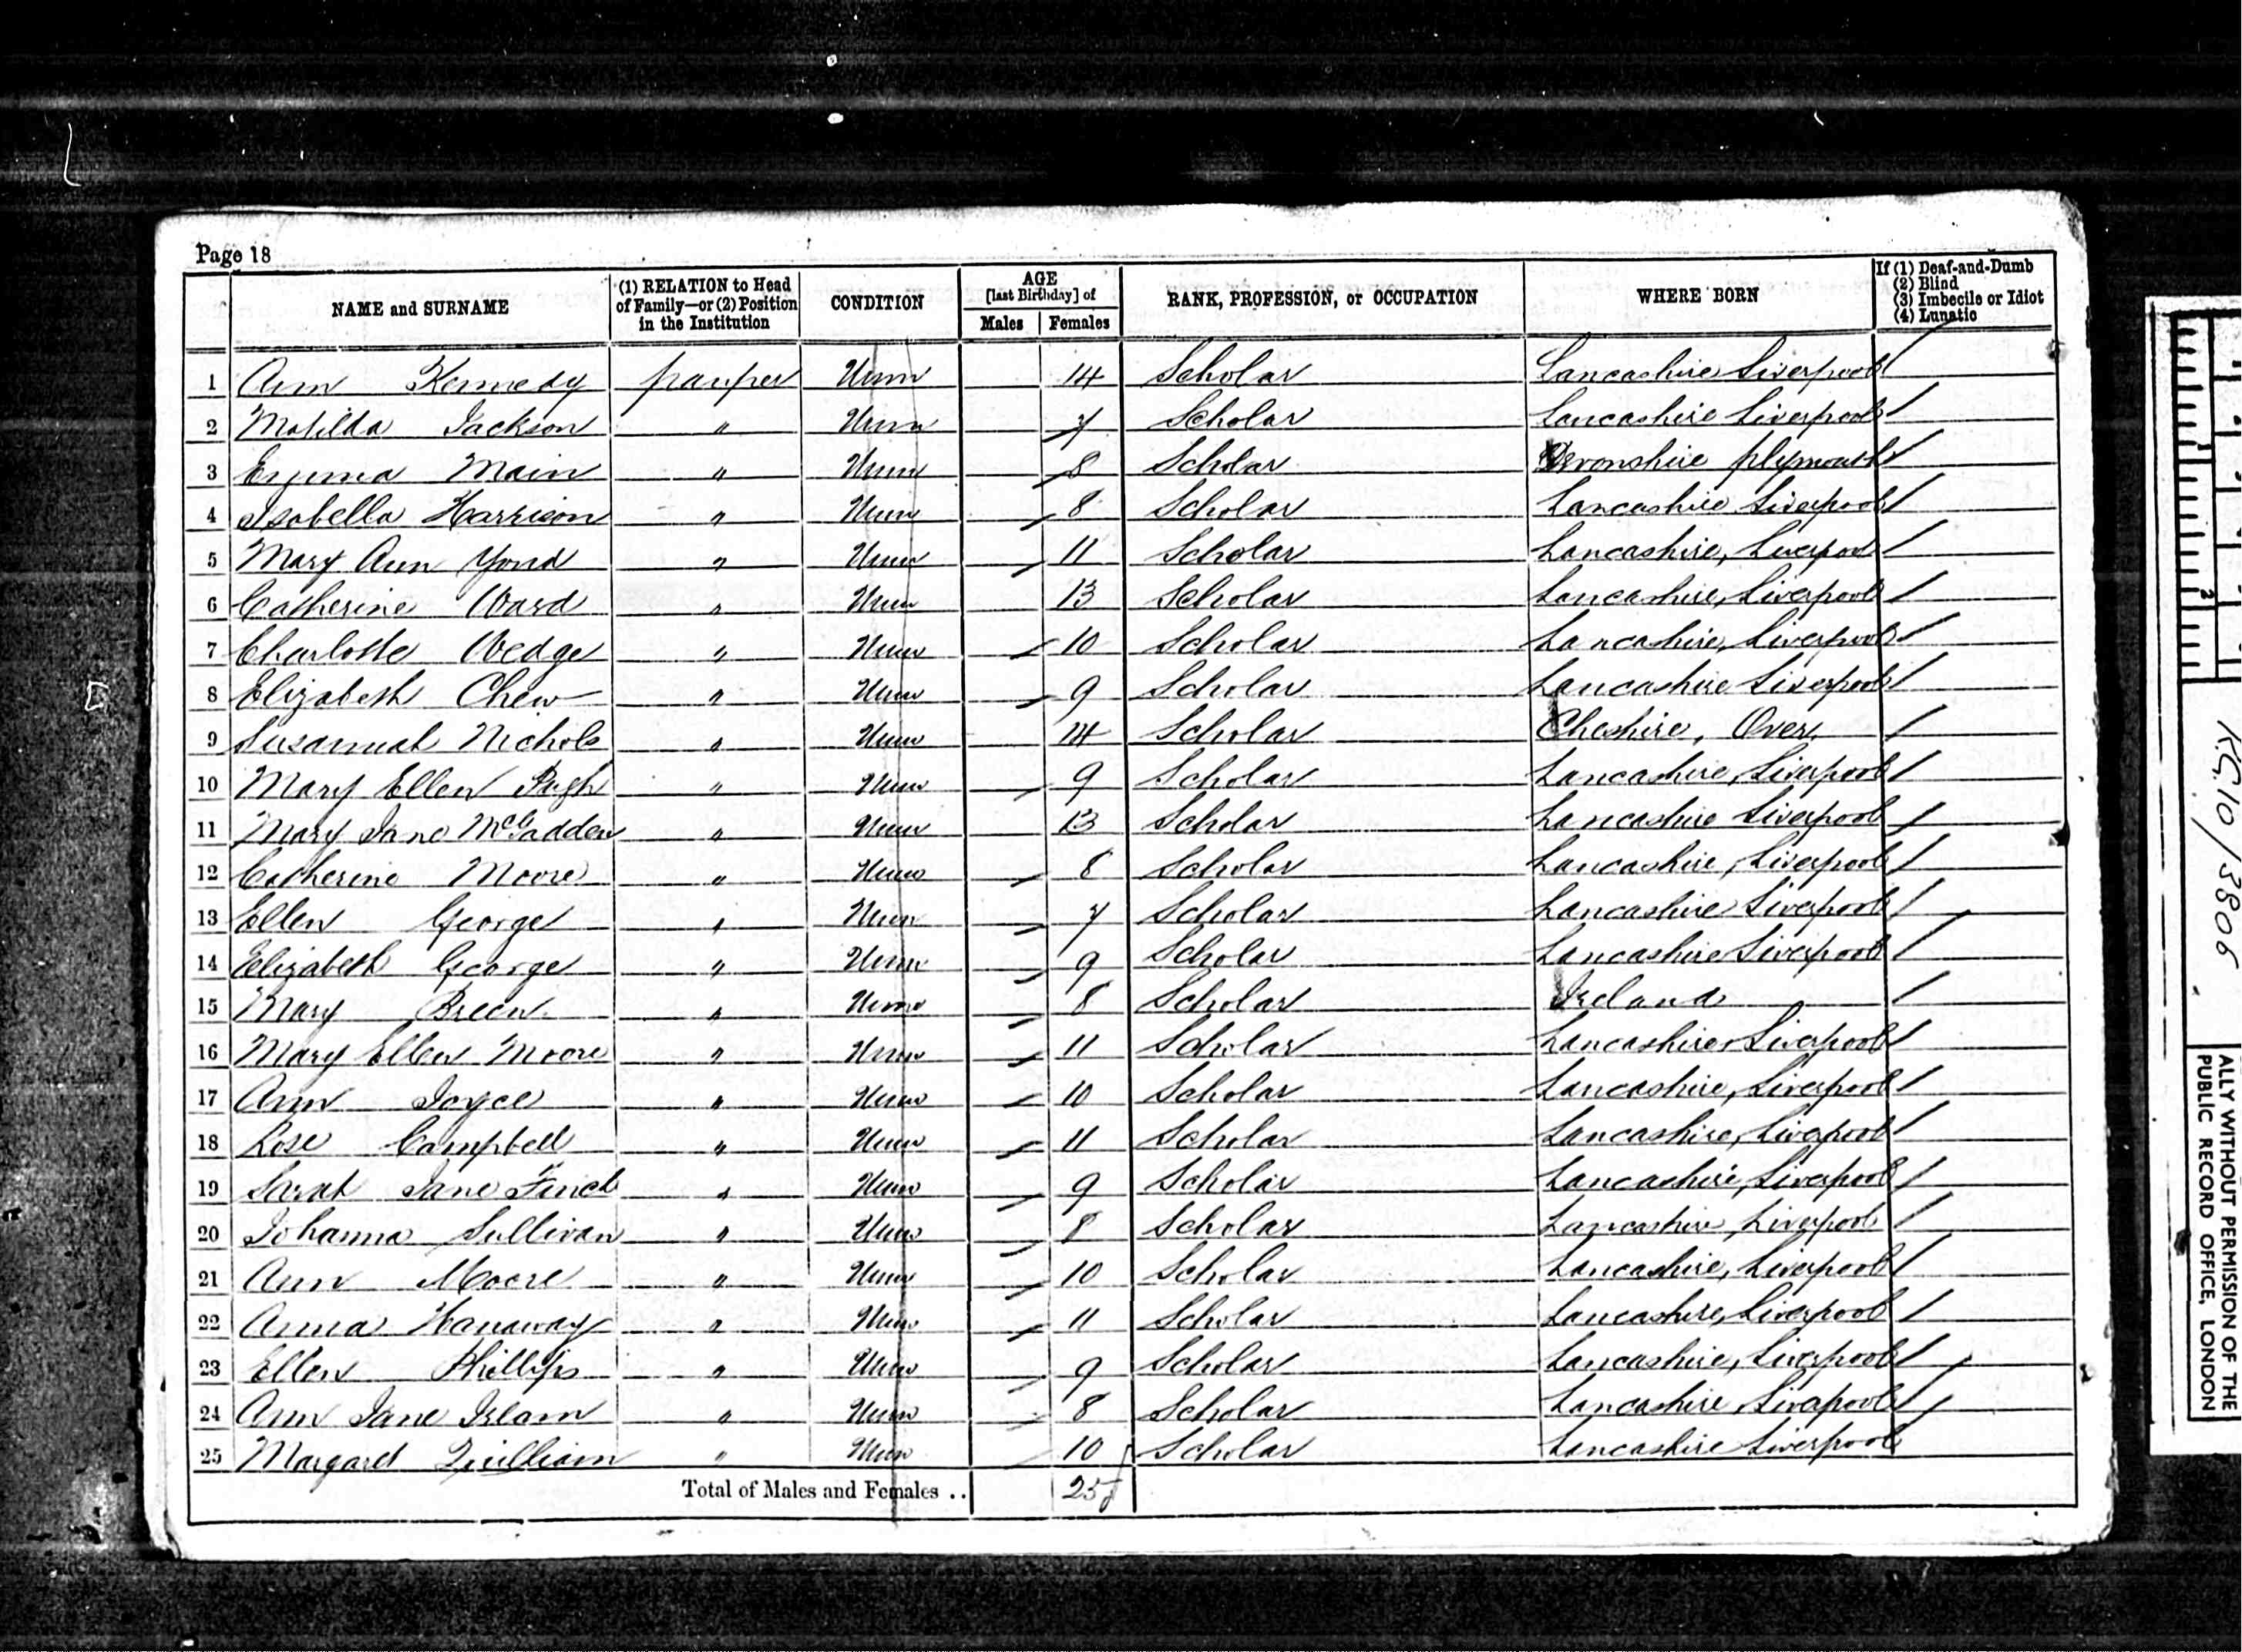 Page 18
NAME and SURNAME (1) RELATION to Head of Family—or (2) Position in the Institution CONDITION AGE [last Birthday] of Males Females RANK, PROFESSION, or OCCUPATION WHERE BORN If (1) Deaf-and-Dumb (2) Blind (3) Imbecile or Idiot (4) Lunatic
1 Ann Kennedy pauper Unm 14 Scholar Lancashire Liverpool
2 Matilda Jackson " Unm 7 Scholar Lancashire Liverpool
3 Emma Main " Unm 8 Scholar Devonshire Plymouth
4 Isabella Harrison " Unm 8 Scholar Lancashire Liverpool
5 Mary Ann Yond " Unm 11 Scholar Lancashire, Liverpool
6 Catherine Ward " Unm 13 Scholar Lancashire, Liverpool
7 Charlotte Wedge " Unm 10 Scholar Lancashire, Liverpool
8 Elizabeth Chew " Unm 9 Scholar Lancashire Liverpool
9 Susannah Nichols " Unm 14 Scholar Cheshire, Over
10 Mary Ellen Pugh " Unm 9 Scholar Lancashire, Liverpool
11 Mary Jane " Unm 13 Scholar Lancashire Liverpool
12 Catherine Moore " Unm 8 Scholar Lancashire, Liverpool
13 Ellen George " Unm 7 Scholar Lancashire Liverpool
14 Elizabeth George " Unm 9 Scholar Lancashire Liverpool
15 Mary Breen " Unm 8 Scholar Ireland
16 Mary Ellen Moore " Unm 11 Scholar Lancashire, Liverpool
17 Ann Joyce " Unm 10 Scholar Lancashire, Liverpool
18 Rose Campbell " Unm 11 Scholar Lancashire, Liverpool
19 Sarah Jane Finch " Unm 9 Scholar Lancashire, Liverpool
20 Johanna Sullivan " Unm 8 Scholar Lancashire, Liverpool
21 Ann Moore " Unm 10 Scholar Lancashire, Liverpool
22 Anna Hanaway " Unm 11 Scholar Lancashire, Liverpool
23 Ellen Phillips " Unm 9 Scholar Lancashire, Liverpool
24 Ann Jane Islam " Unm 8 Scholar Lancashire, Liverpool
25 Margaret Quilliam " Unm 10 Scholar Lancashire Liverpool
Total of Males and Females .. 25
R.G. 10/3806
ALLY WITHOUT PERMISSION OF THE
PUBLIC RECORD OFFICE, LONDON